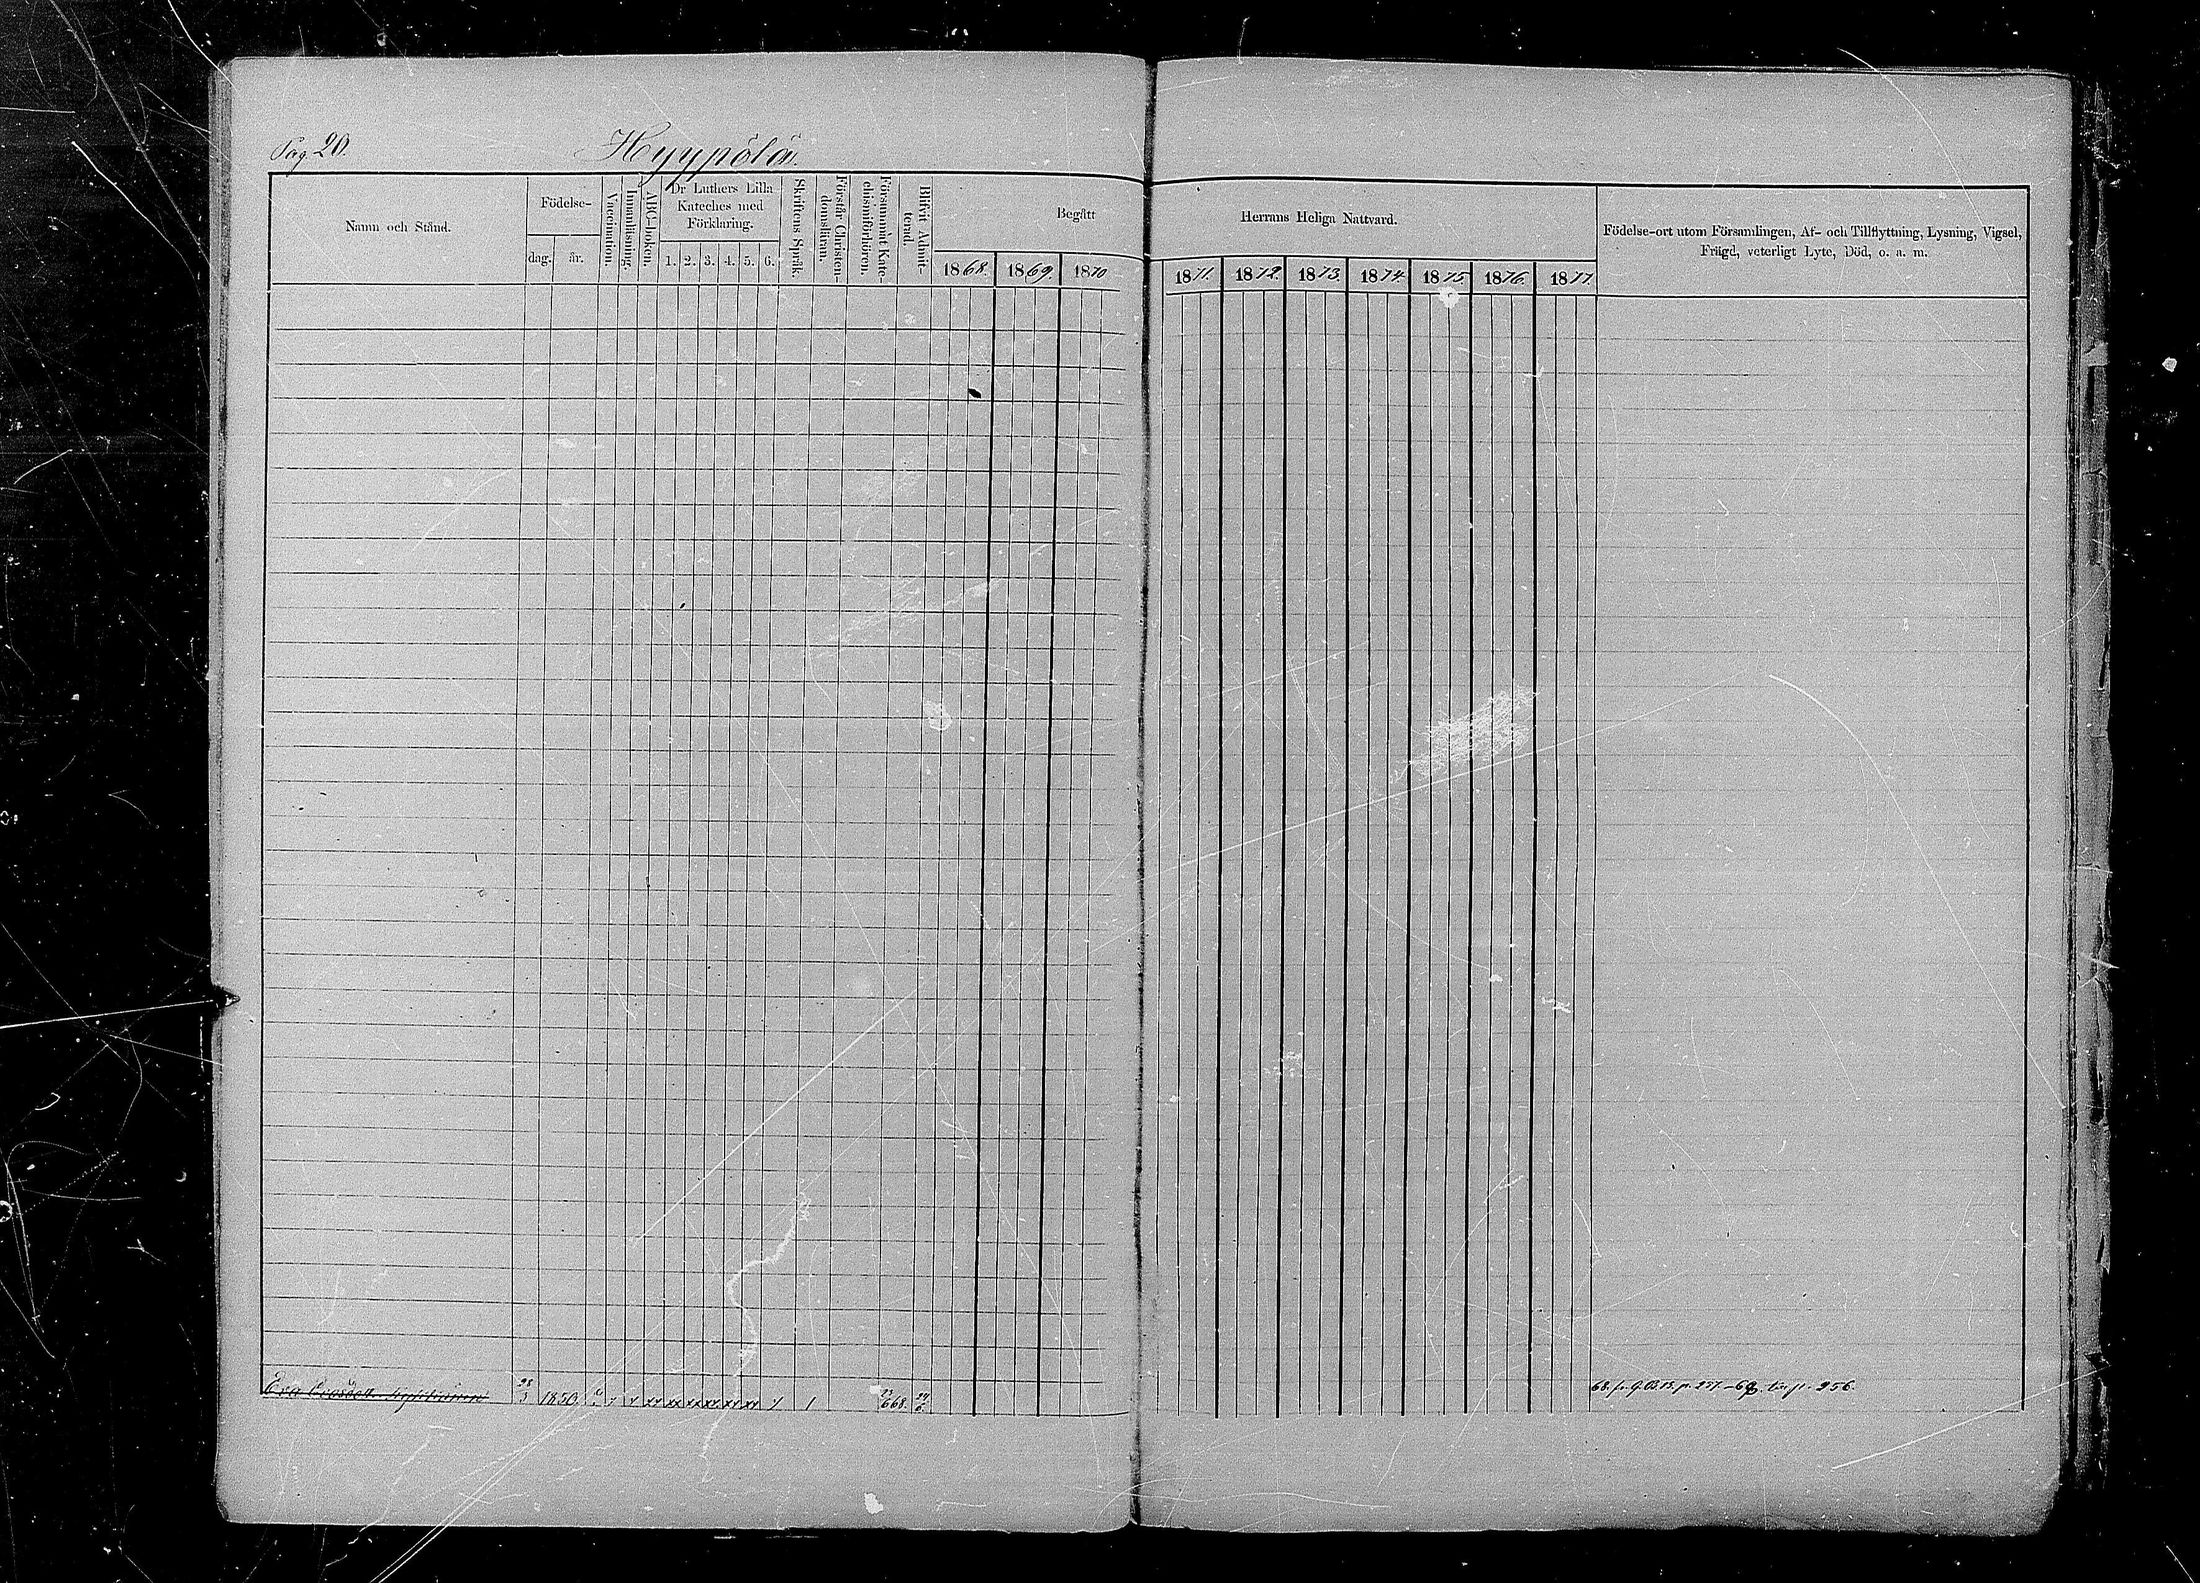 Pag 20.
Hyypölä.
Namn och Stånd.
Födelse-
dag.
år.
Vaccination.
Innanläsning.
ABC-boken.
Dr Luthers Lilla
Kateches med
Förklaring.
1. 2. 3. 4. 5. 6.
Skriftens Språk.
Förstår Christen-
domsläran.
Försummat Kate-
chismiförhören.
Blifvit Admit-
terad.
Begått
1868. 1869 1870
Herrans Heliga Nattvard.
1871. 1872. 1873. 1874. 1875. 1876. 1877.
Födelse-ort utom Församlingen, Af- och Tillflyttning, Lysning, Vigsel,
Frägd, veterligt Lyte, Död, o. a. m.
Eva 28/3 1850.